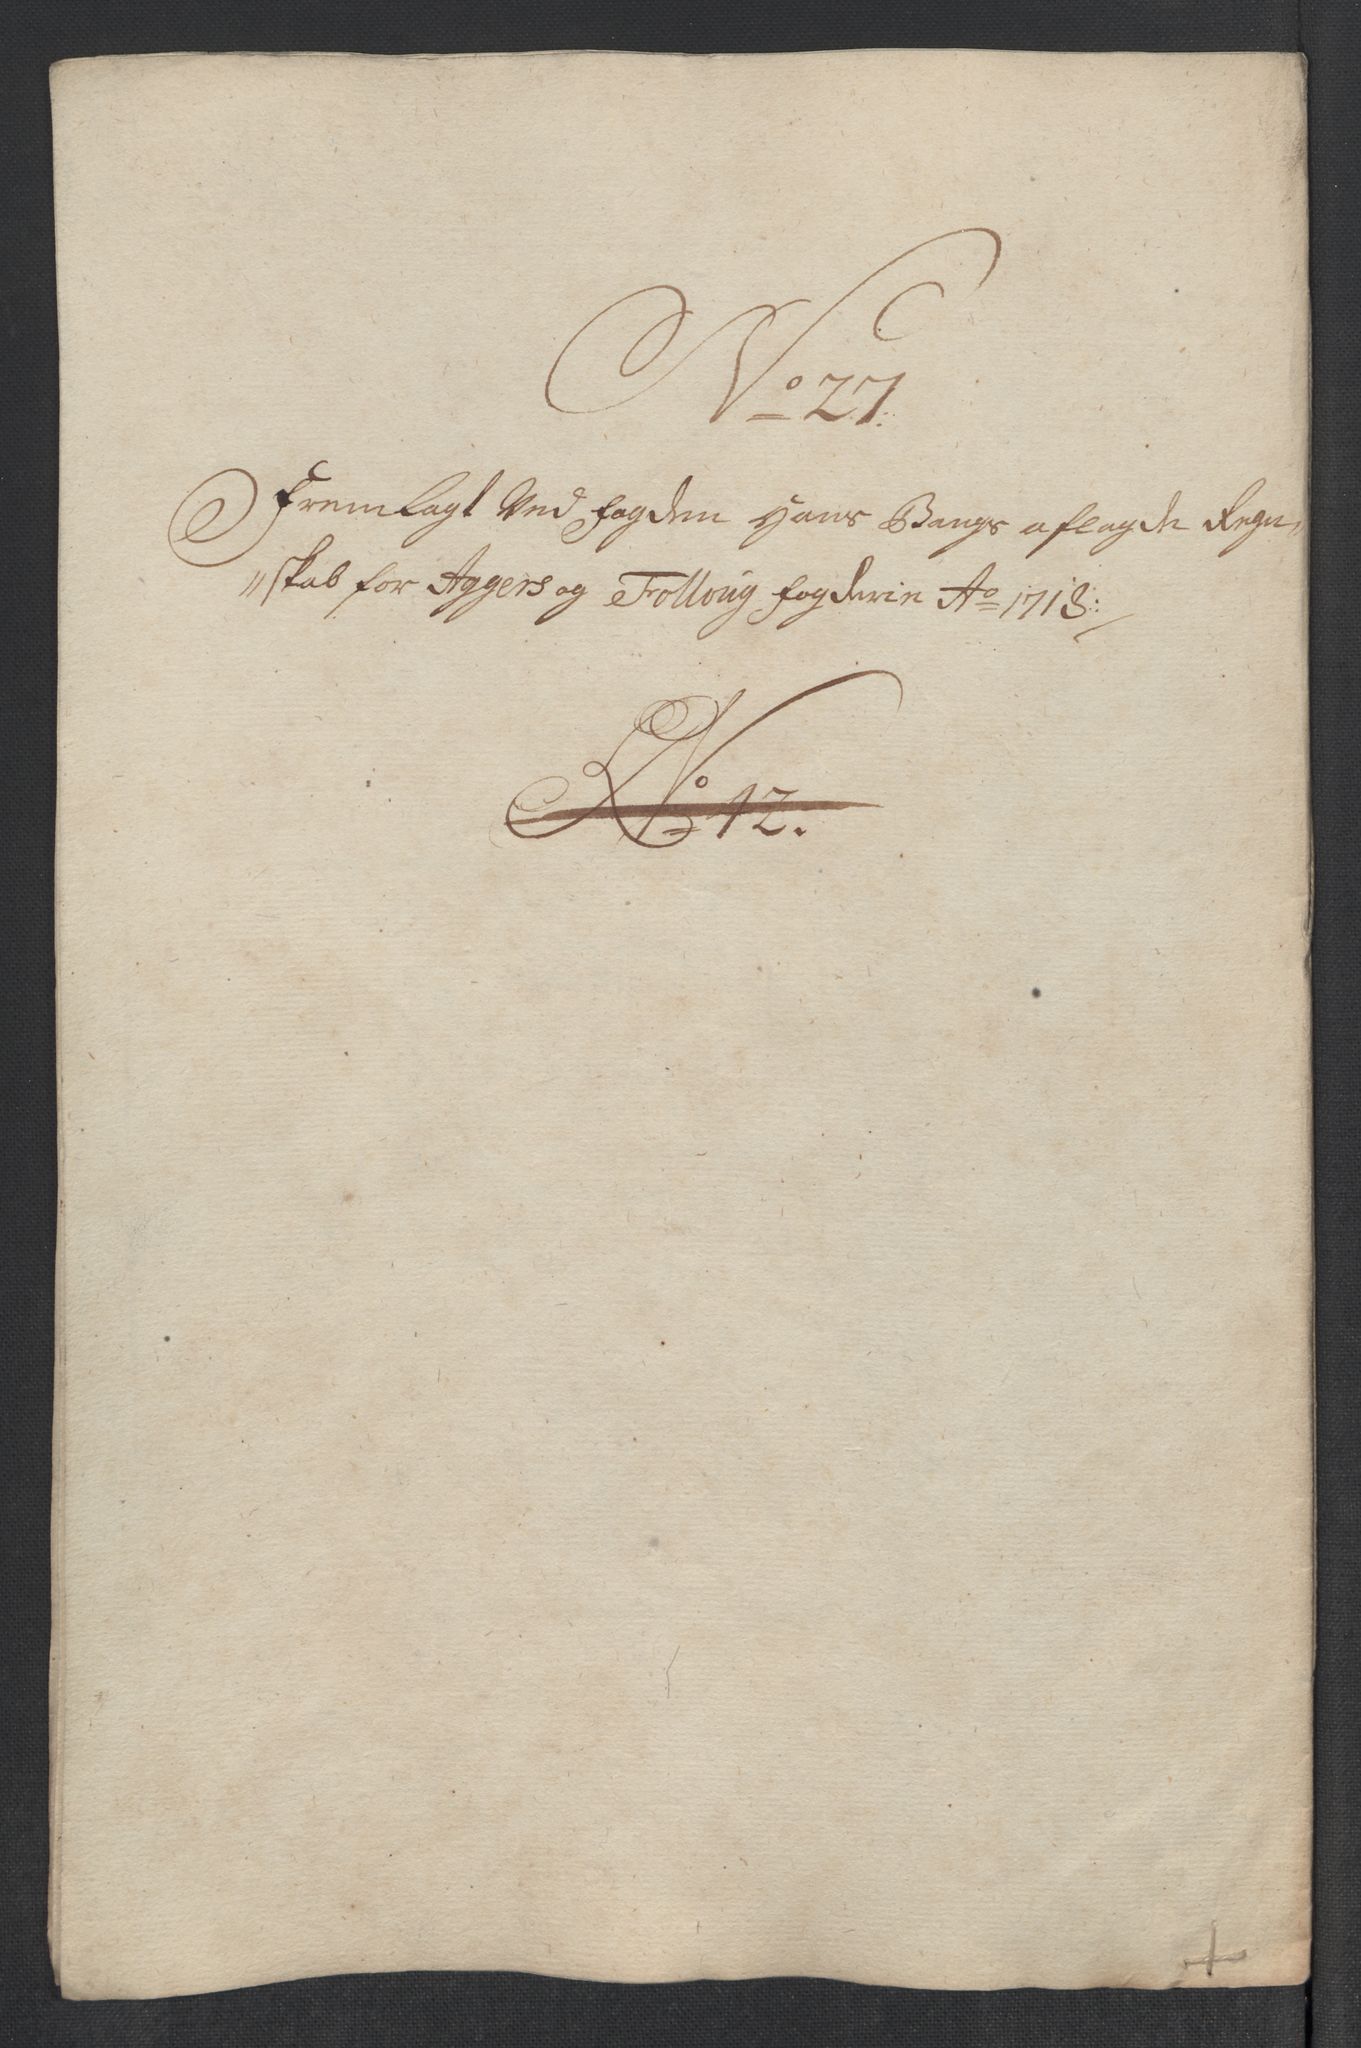 No 27.
Fremlagt Ved fogden Hans Bangs aflagde Regn„
„skab for Aggers og Folloug fogderie Ao 1718:
No 12.